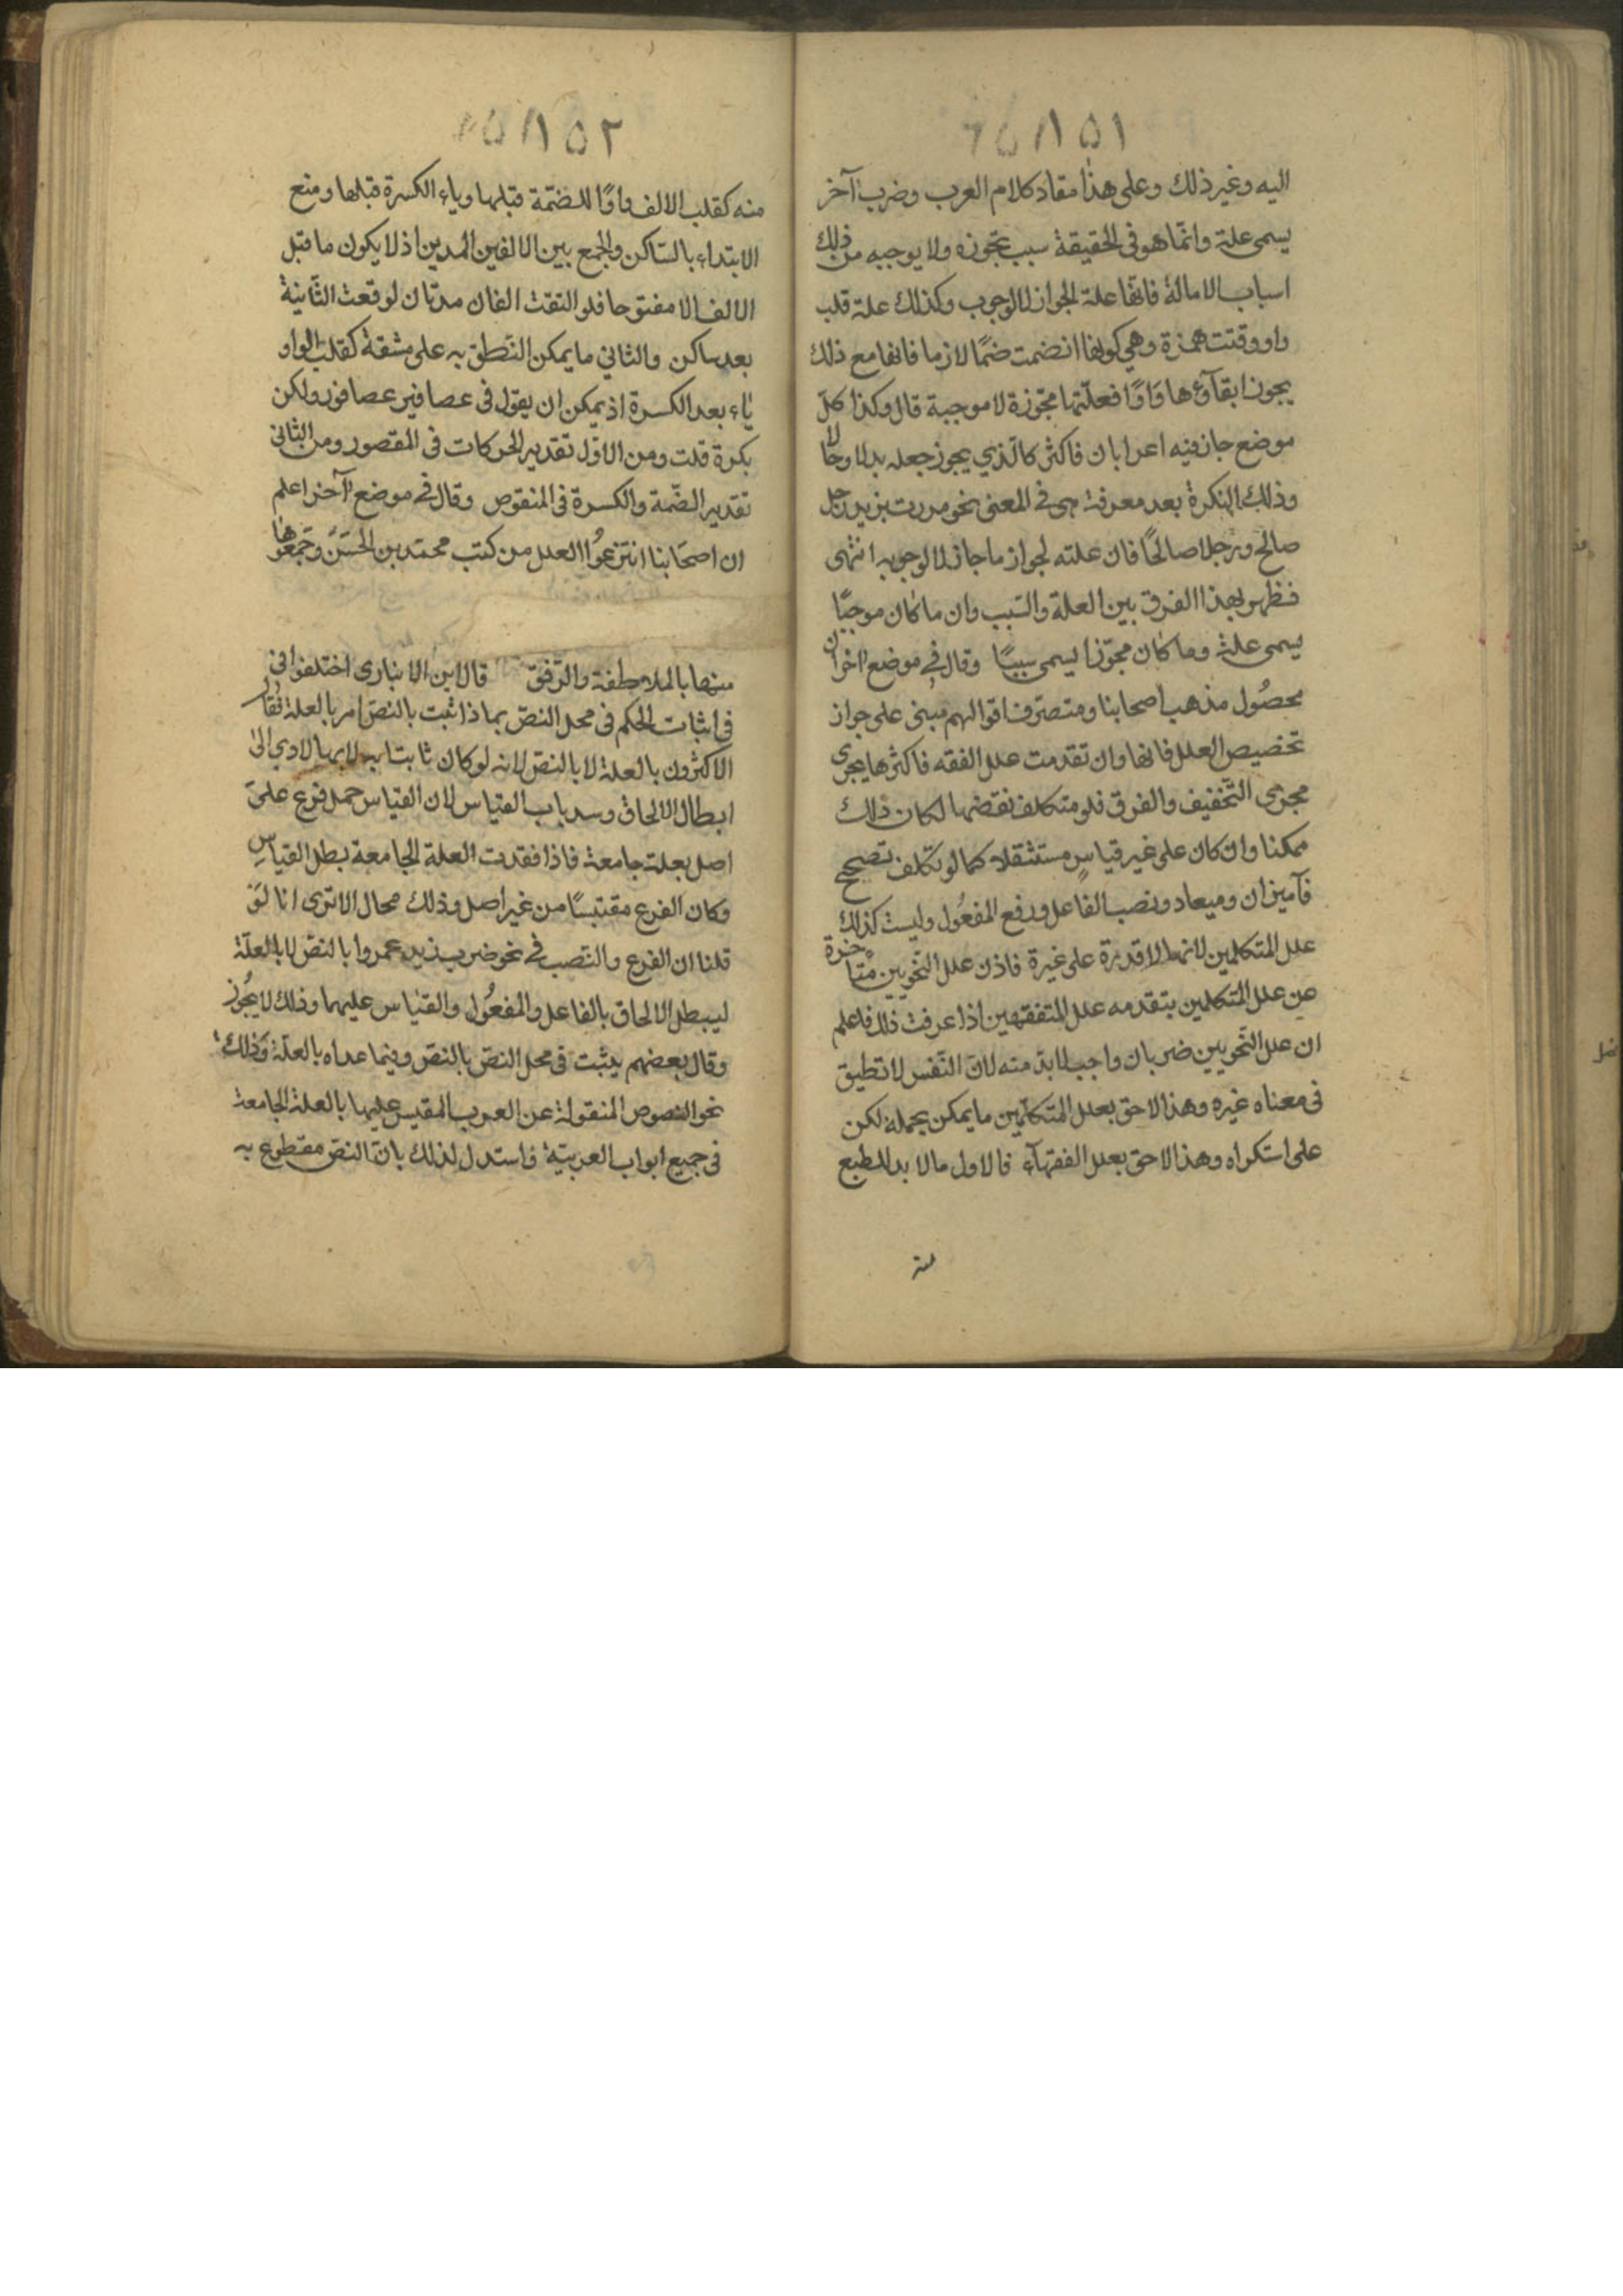 ١٥١
اليه وغير ذلك وعلى هذا مقاد كلام العرب وضرب آخر
يسمى علة وانما هو فى الحقيقة سبب يجوزه ولا يوجبه من ذلك
اسباب الامالة فانها علة الجواز لا الوجوب وكذلك علة قلب
واو وقتت همزة وهي كونها انضمت ضمًا لازما فانها مع ذلك
يجوز ابقآؤها وَاوًا فعلّتها مجّوزة لا موجبة قال وكذا كل
موضع جاز فيه اعرابان فاكثر كالّذي يجوز جعله بدلا وحالا
وذلك النكرة بعد معرفة هى فى المعنى نحو مررت بزيد رجل
صالح ورجلا صالحًا فان علته لجواز ما جاز لا لوجوبه انتهى
فظهر بهذا الفرق بين العلة والسّبب وان ما كان موجبًا
يسمى علة وما كان مجوّزا يسمى سببًا وقال فى موضع اخر ان
محصُول مذهب اصحابنا ومتصرّف اقوالهم مبنى على جواز
تخصيص العلل فانها وان تقدمت علل الفقه فاكثرها يجرى
مجرى التّخفيف والفرق فلو متكلف نقضها لكان ذلك
ممكنا وان كان على غير قياسٍ مستثقلا كما لو تكلف تصحيح
فآ ميزان وميعاد ونصب الفاعل ورفع المفعُول وليست كذلك
علل المتكلمين لانها لا قدرة على غيرة فاذن علل النّحويين متاخرة
عن علل المتكلمين بتقدمه علل المتفقهين اذا عرفت ذلك فاعلم
ان علل النّحويين ضربان واجب لا بدّ منه لانّ النّفس لا تطيق
فى معناه غيره وهذا لاحق بعلل المتكلّمين ما يمكن بحمله لكن
على استكراه وهذا لاحق بعلل الفقهآء فالاول ما لا بد للطبع
منه
١٥٢
منه كقلب الالف واوًا للضمّة قبلها وياء الكسرة قبلها ومنع
الابتداء بالسّاكن والجمع بين الالفين المدين اذ لا يكون ما قبل
الالف الا مفتوحا فلو التقت الفان مدتان لوقعت الثّانية
بعد ساكن والثانى ما يمكن النّطق به على مشقة كقلب الواو
ياء بعد الكسرة اذ يمكن ان يقول فى عصافير عصافور ولكن
بكرة قلت ومن الاوّل تقدير الحركات فى المقصور ومن الثانى
تقدير الضّمة والكسرة فى المنقوص وقال فى موضع آخر اعلم
ان اصحَابنا انتزعُوا العلل من كتب محمّد بن الحسَن وجَمعُوها
منها بالملاطفة والرّفق قال ابن الانبارى اختلفوا فى
فى اثبات الحكم فى محل النصّ بماذا ثبت بالنصّ ام بالعلة فقال
الاكثرون بالعلة لا بالنصّ لانه لو كان ثابتا به لا بها لادى الى
ابطال الالحاق وسد باب القياس لان القياس حمل فرع على
اصل بعلة جامعة فاذا فقدت العلة الجامعة بطل القياس
وكان الفرع مقتبسًا من غير اصل وذلك محال الا ترى انا لو
قلنا ان الفرع والنّصب فى نحو ضرب زيد عمروا بالنصّ لا بالعلّة
ليبطل الالحاق بالفاعل والمفعُول والقياس عليهما وذلك لا يجُوز
وقال بعضهم يثبت فى محل النصّ بالنصّ وفيما عداه بالعلّة وَذلك
نحو النصوص المنقولة عن العرب المقيس عليها بالعلة الجامعة
فى جميع ابواب العربيّة واستدل لذلك بانّ النصّ مقطوع به